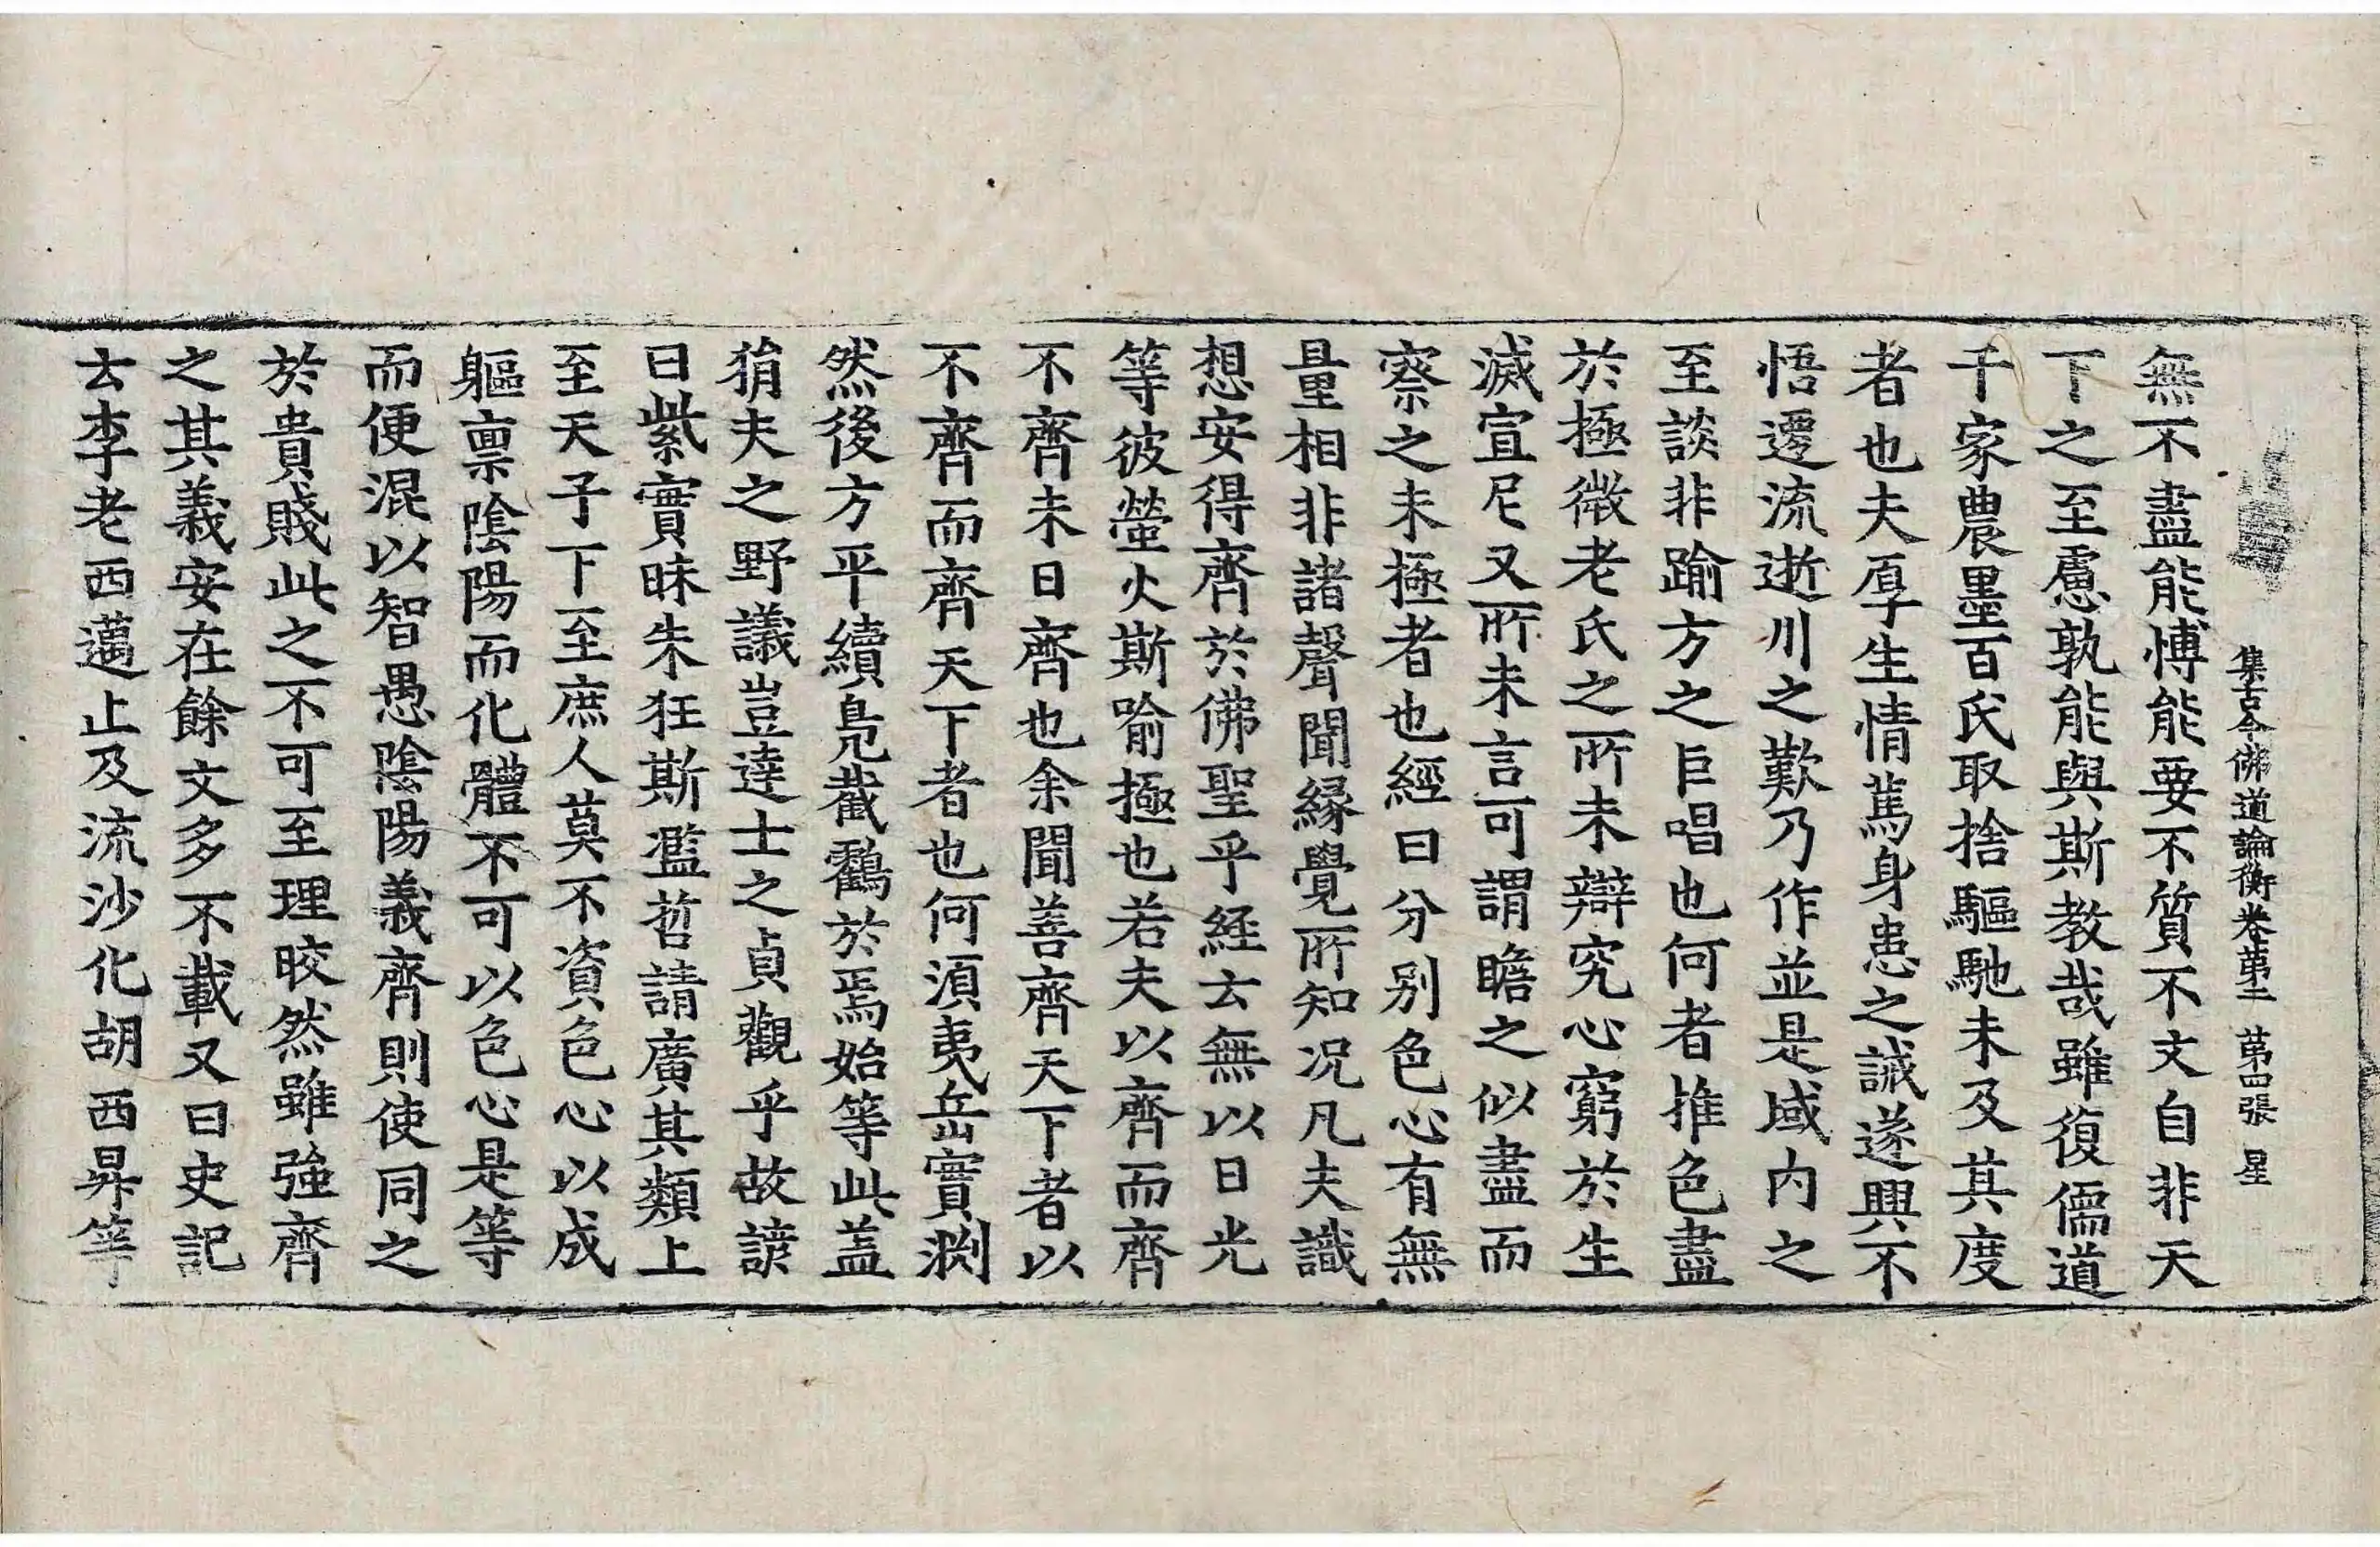 集古今佛道論衡卷苐二 苐四張 星
無不盡能博能要不質不文自非天
下之至慮孰能與斯教哉雖復儒道
千家農墨百氏取捨驅馳未及其度
者也夫厚生情篤身患之誡遂興不
悟遷流逝川之歎乃作並是域内之
至談非踰方之巨唱也何者推色盡
於極微老氏之所未辯究心窮於生
滅宣尼又所未言可謂瞻之似盡而
察之未極者也經曰分别色心有無
量相非諸聲聞緣覺所知况凡夫識
想安得齊於佛聖乎経云無以日光
等彼螢火斯喻極也若夫以齊而齊
不齊未曰齊也余聞善齊天下者以
不齊而齊天下者也何須夷岳實渕
然後方平續鳧截鶴於焉始等此盖
猾夫之野議豈達士之貞觀乎故諺
曰紫實昧朱狂斯濫哲請廣其類上
至天子下至庶人莫不資色心以成
軀禀陰陽而化體不可以色心是等
而便混以智愚陰陽義齊則使同之
於貴賤此之不可至理皎然雖強齊
之其義安在餘文多不載又曰史記
云李老西邁止及流沙化胡西昇等